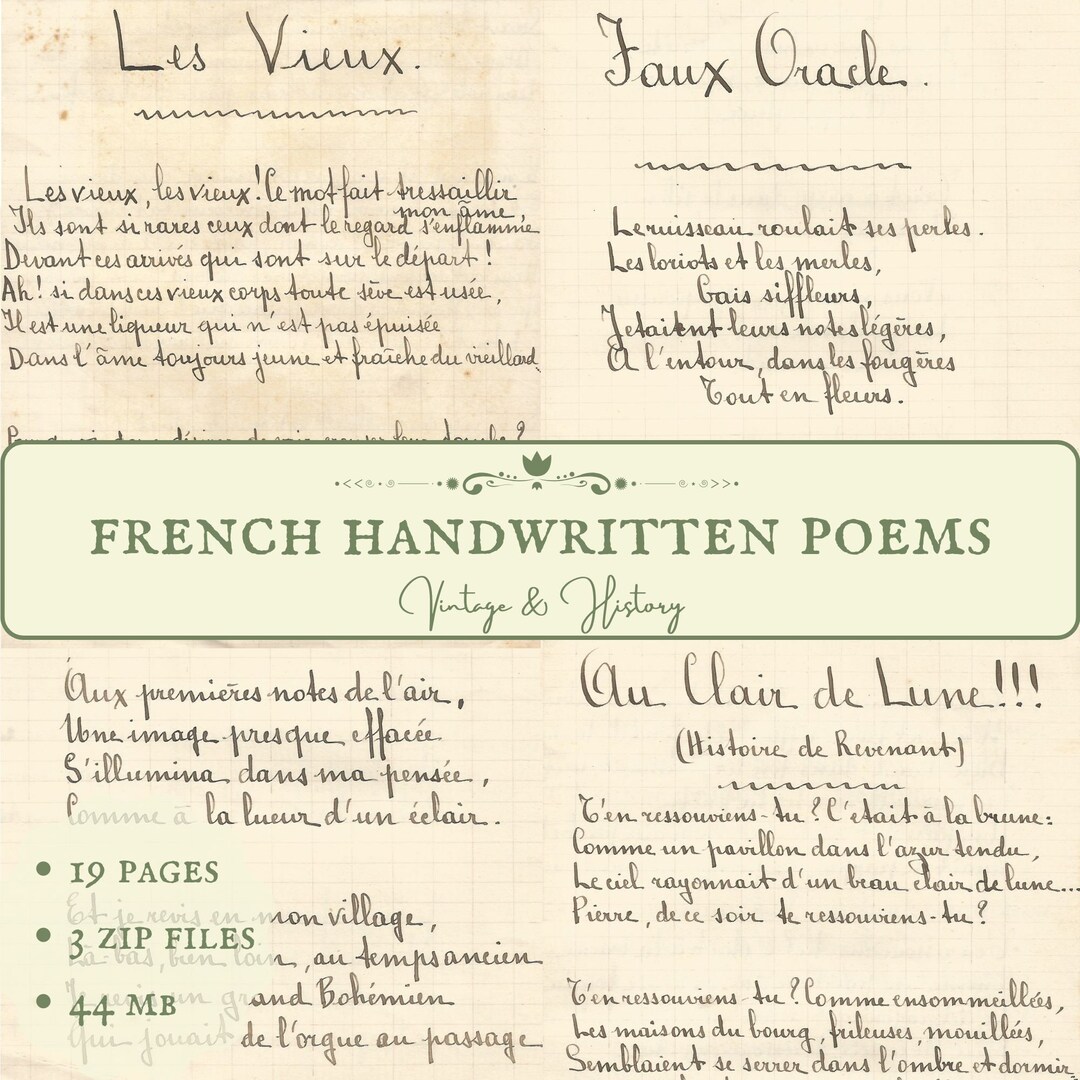 Les Vieux.
Les vieux, les vieux! Ce mot fait tressaillir
mon âme,
Ils sont si rares ceux dont le regard s'enflamme
Devant ces arrivés qui sont sur le départ!
Ah! si dans ces vieux corps toute sève est usée,
Il est une liqueur qui n'est pas épuisée
Dans l'âme toujours jeune et fraîche du vieillard.
Faux Oracle.
Le ruisseau roulait ses perles.
Les loriots et les merles,
Gais siffleurs,
Jetaient leurs notes légères,
A l'entour, dans les fougères
Tout en fleurs.
FRENCH HANDWRITTEN POEMS
Vintage & History
Aux premières notes de l'air,
Une image presque effacée
S'illumina dans ma pensée,
Comme à la lueur d'un éclair.
Et je revis en mon village,
Là-bas, bien loin, au temps ancien
Je revis un grand Bohémien
Qui jouait de l'orgue au passage
• 19 PAGES
• 3 ZIP FILES
• 44 MB
Au Clair de Lune!!!
(Histoire de Revenant)
T'en ressouviens-tu? C'était à la brune:
Comme un pavillon dans l'azur tendu,
Le ciel rayonnait d'un beau clair de lune...
Pierre, de ce soir te ressouviens-tu?
T'en ressouviens-tu? Comme ensommeillées,
Les maisons du bourg, frileuses, mouillées,
Semblaient se serrer dans l'ombre et dormir,